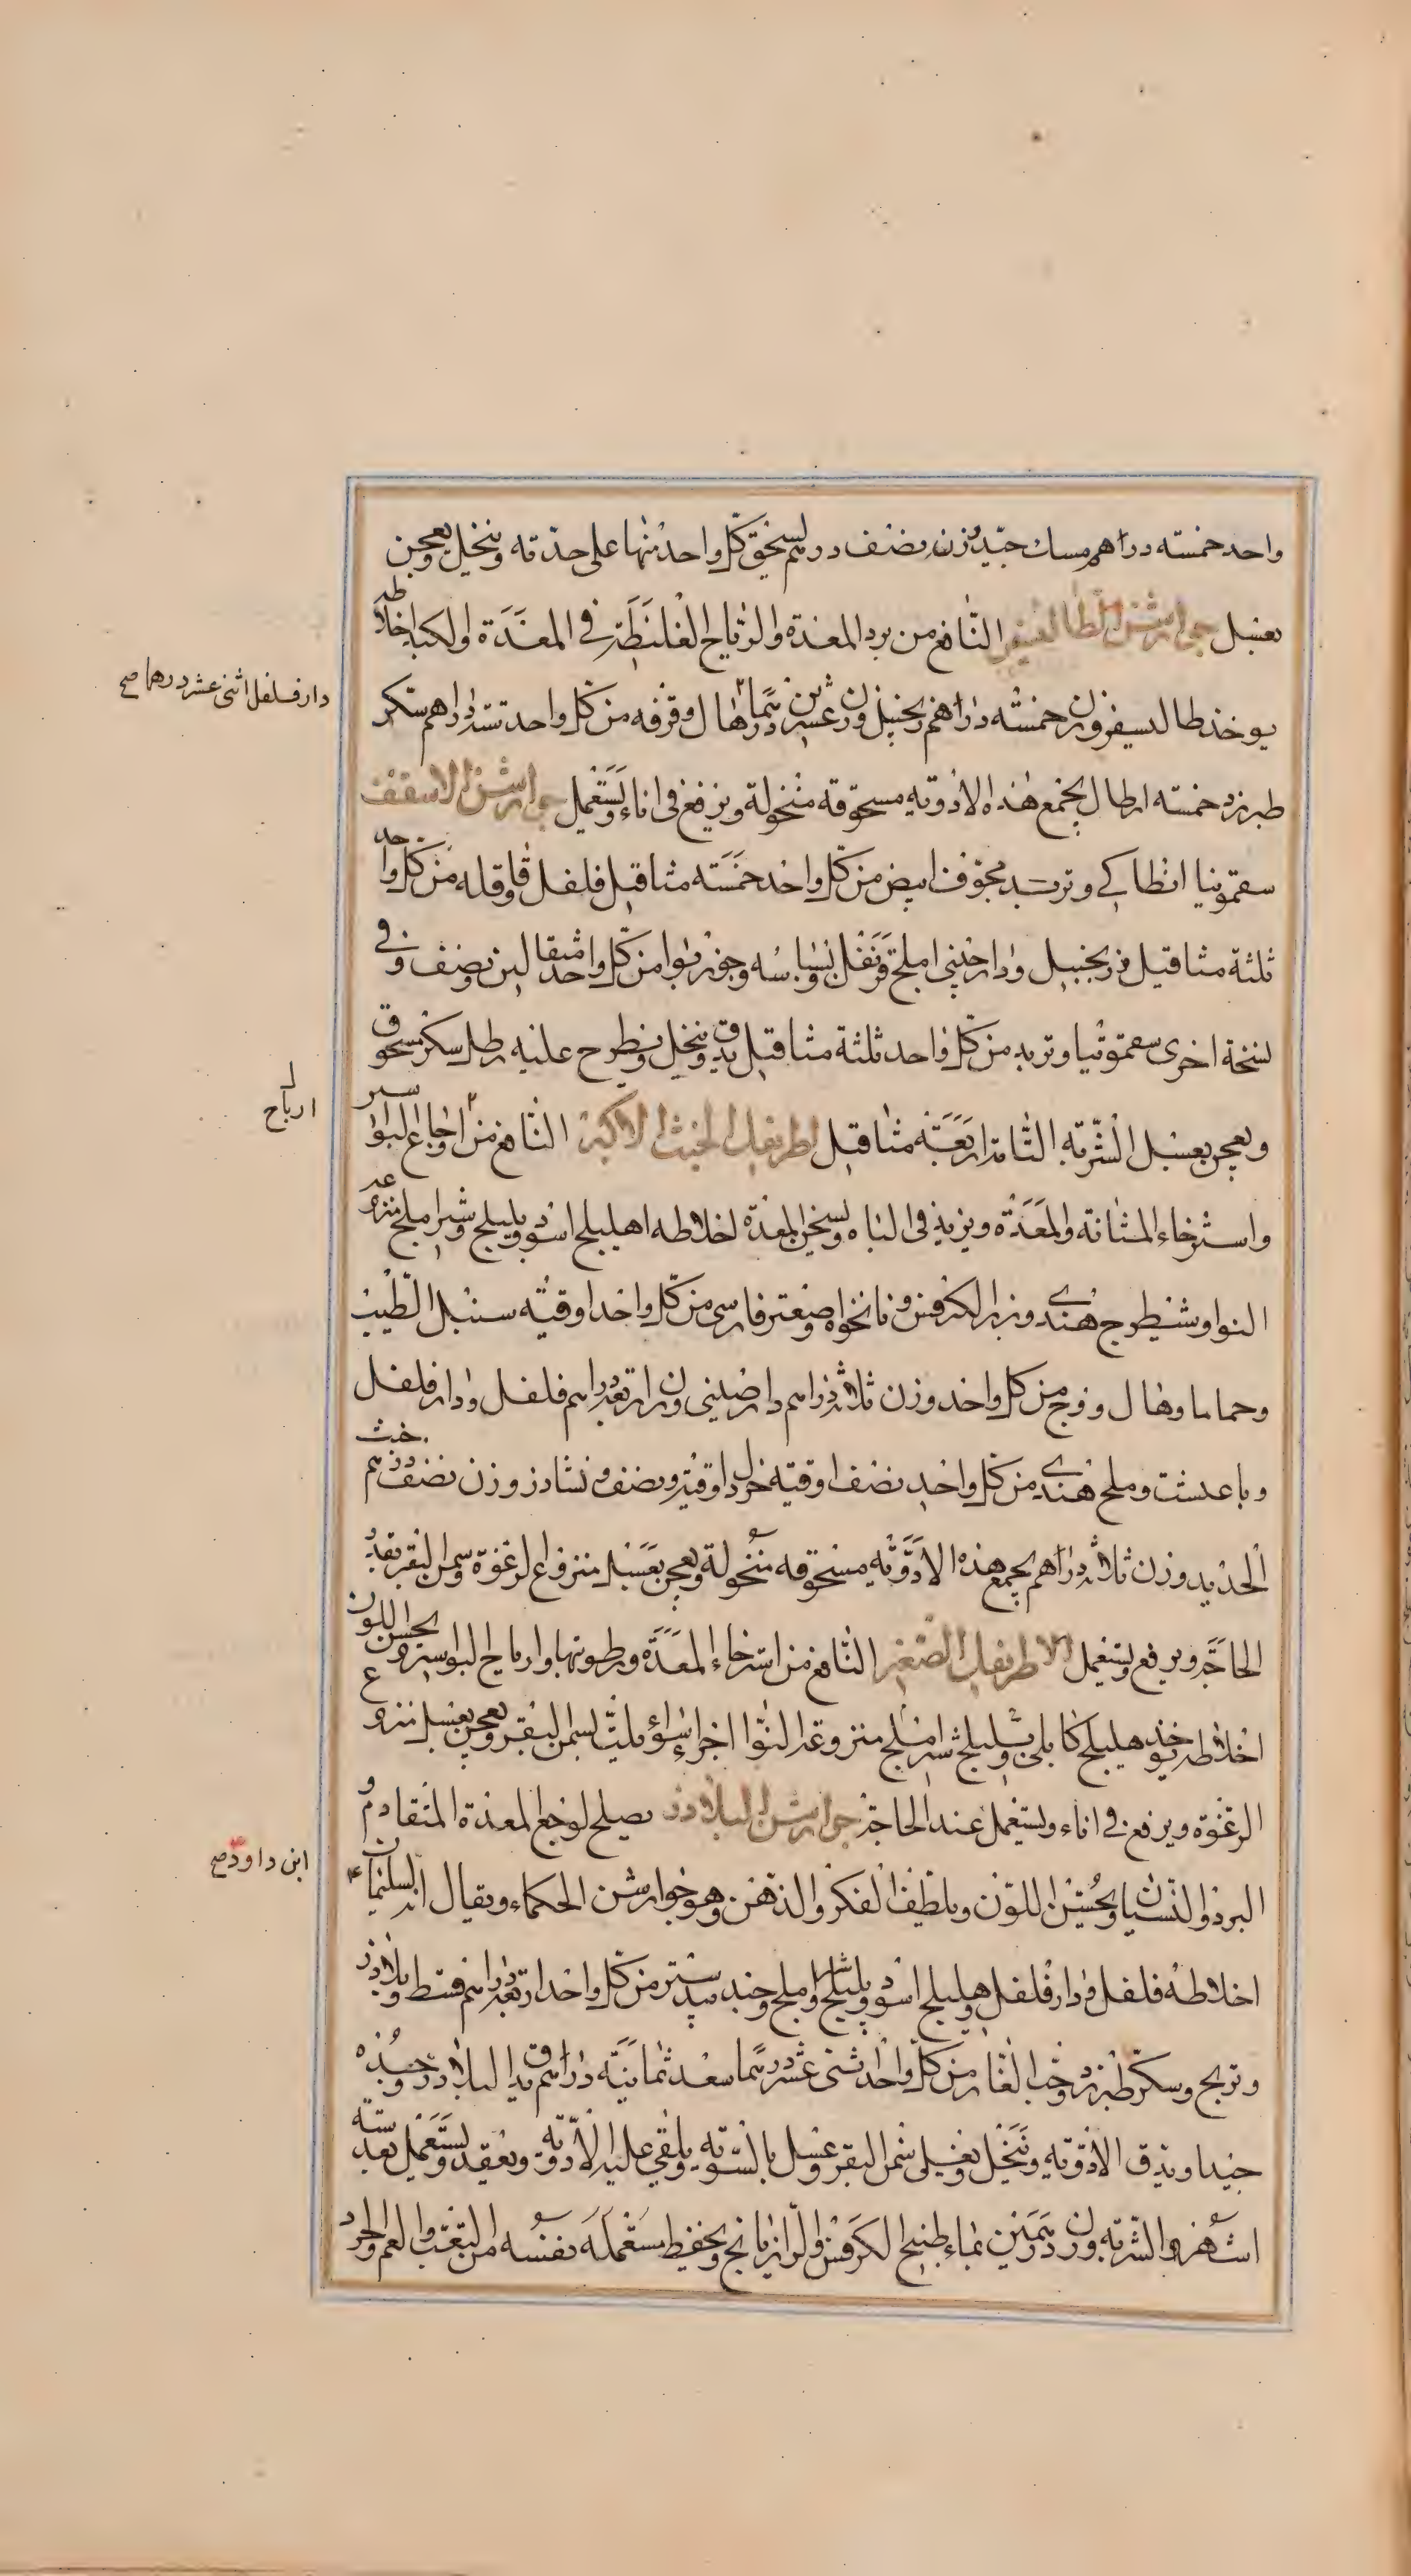 واحد خمسته دراهم مسك جيد وزن نصف درهم يسحق كل واحد منها على حدته وينخل ويعجن
بعسل جوارشن الطاليسفر النافع من برد المعدة والرياح الغليظة في المعدة والكبد اخلاطه
يوخذ طاليسفر وزن خمسة دراهم زنجبيل وزن عشرين درهما هال وقرفه من كل واحد ستة دراهم سكر
دار فلفل اثني عشر درهما صح
طبرزد خمسته ارطال يجمع هذه الادويه مسحوقه منخولة ويرفع في اناء ويستعمل جوارشن الاسقف
سقمونيا انطاكي وتربد مجوف ابيض من كل واحد خمسته مثاقيل فلفل وقاقله من كل واحد
ثلثة مثاقيل زنجبيل ودارچيني املج قرنفل وبسباسه وجوزبوا من كل واحد مثقالين نصف وفي
نسخة اخرى سقمونيا وتربد من كل واحد ثلثة مثاقيل يدق وينخل ويطرح عليه رطل سكر مسحوق
ويعجن بعسل الشربة التامة اربعة مثاقيل اطريفل الخبث الاكبر النافع من اوجاع البواسير
ارباح
واسترخاء المثانة والمعدة ويزيد في الباه ويسخن المعدة اخلاطه اهليلج اسود وبليلج وشير املج منزوعه
النوا وشيطرج هندي وبزر الكرفس ونانخواه وصعتر فارسي من كل واحد اوقيته سنبل الطيب
وحماما وهال ووج من كل واحد وزن ثلاثه دراهم دارصيني وزن اربعه دراهم فلفل ودار فلفل
وملح هندي من كل واحد نصف اوقية خردل اوقية ونصف ونشادر وزن نصف درهم خبث
الحديد وزن ثلاثه دراهم يجمع هذه الادويه مسحوقه منخولة ويعجن بعسل منزوع الرغوة وسمن البقر بقدر
الحاجة ويرفع ويستعمل الاطريفل الصغير النافع من استرخاء المعدة ورطوبتها وارياح البواسير ويحسن اللون
اخلاطه يوخذ هليلج كابلي وبليلج شير املج منزوعه النوا اجزاء سواء يلت بسمن البقر ويعجن بعسل منزوع
الرغوة ويرفع في اناء ويستعمل عند الحاجة جوارشن البلادر يصلح لوجع المعدة المتقادم و
البرد والنسيان ويحسن اللون ويلطف الفكر والذهن وهو جوارشن الحكماء ويقال انه لسليمان
ابن داود صح
اخلاطه فلفل ودار فلفل وهليلج اسود وبليلج واملج وجند بيدستر من كل واحد اربعة دراهم قسط وبلادر
وبرنج وسكر طبرزد وحب الغار من كل واحد اثني عشر درهما سعد ثمانية دراهم يدق البلادر وحده
جيدا ويدق الادويه وينخل ويغلى سمن البقر وعسل بالسويه ويلقى عليه الادويه ويعقد ويستعمل بعد ستة
اشهر والشربه وزن درهمين بماء طبيخ الكرفس والرازيانج ويحفظ مستعمله نفسه من التعب والغم والحرد